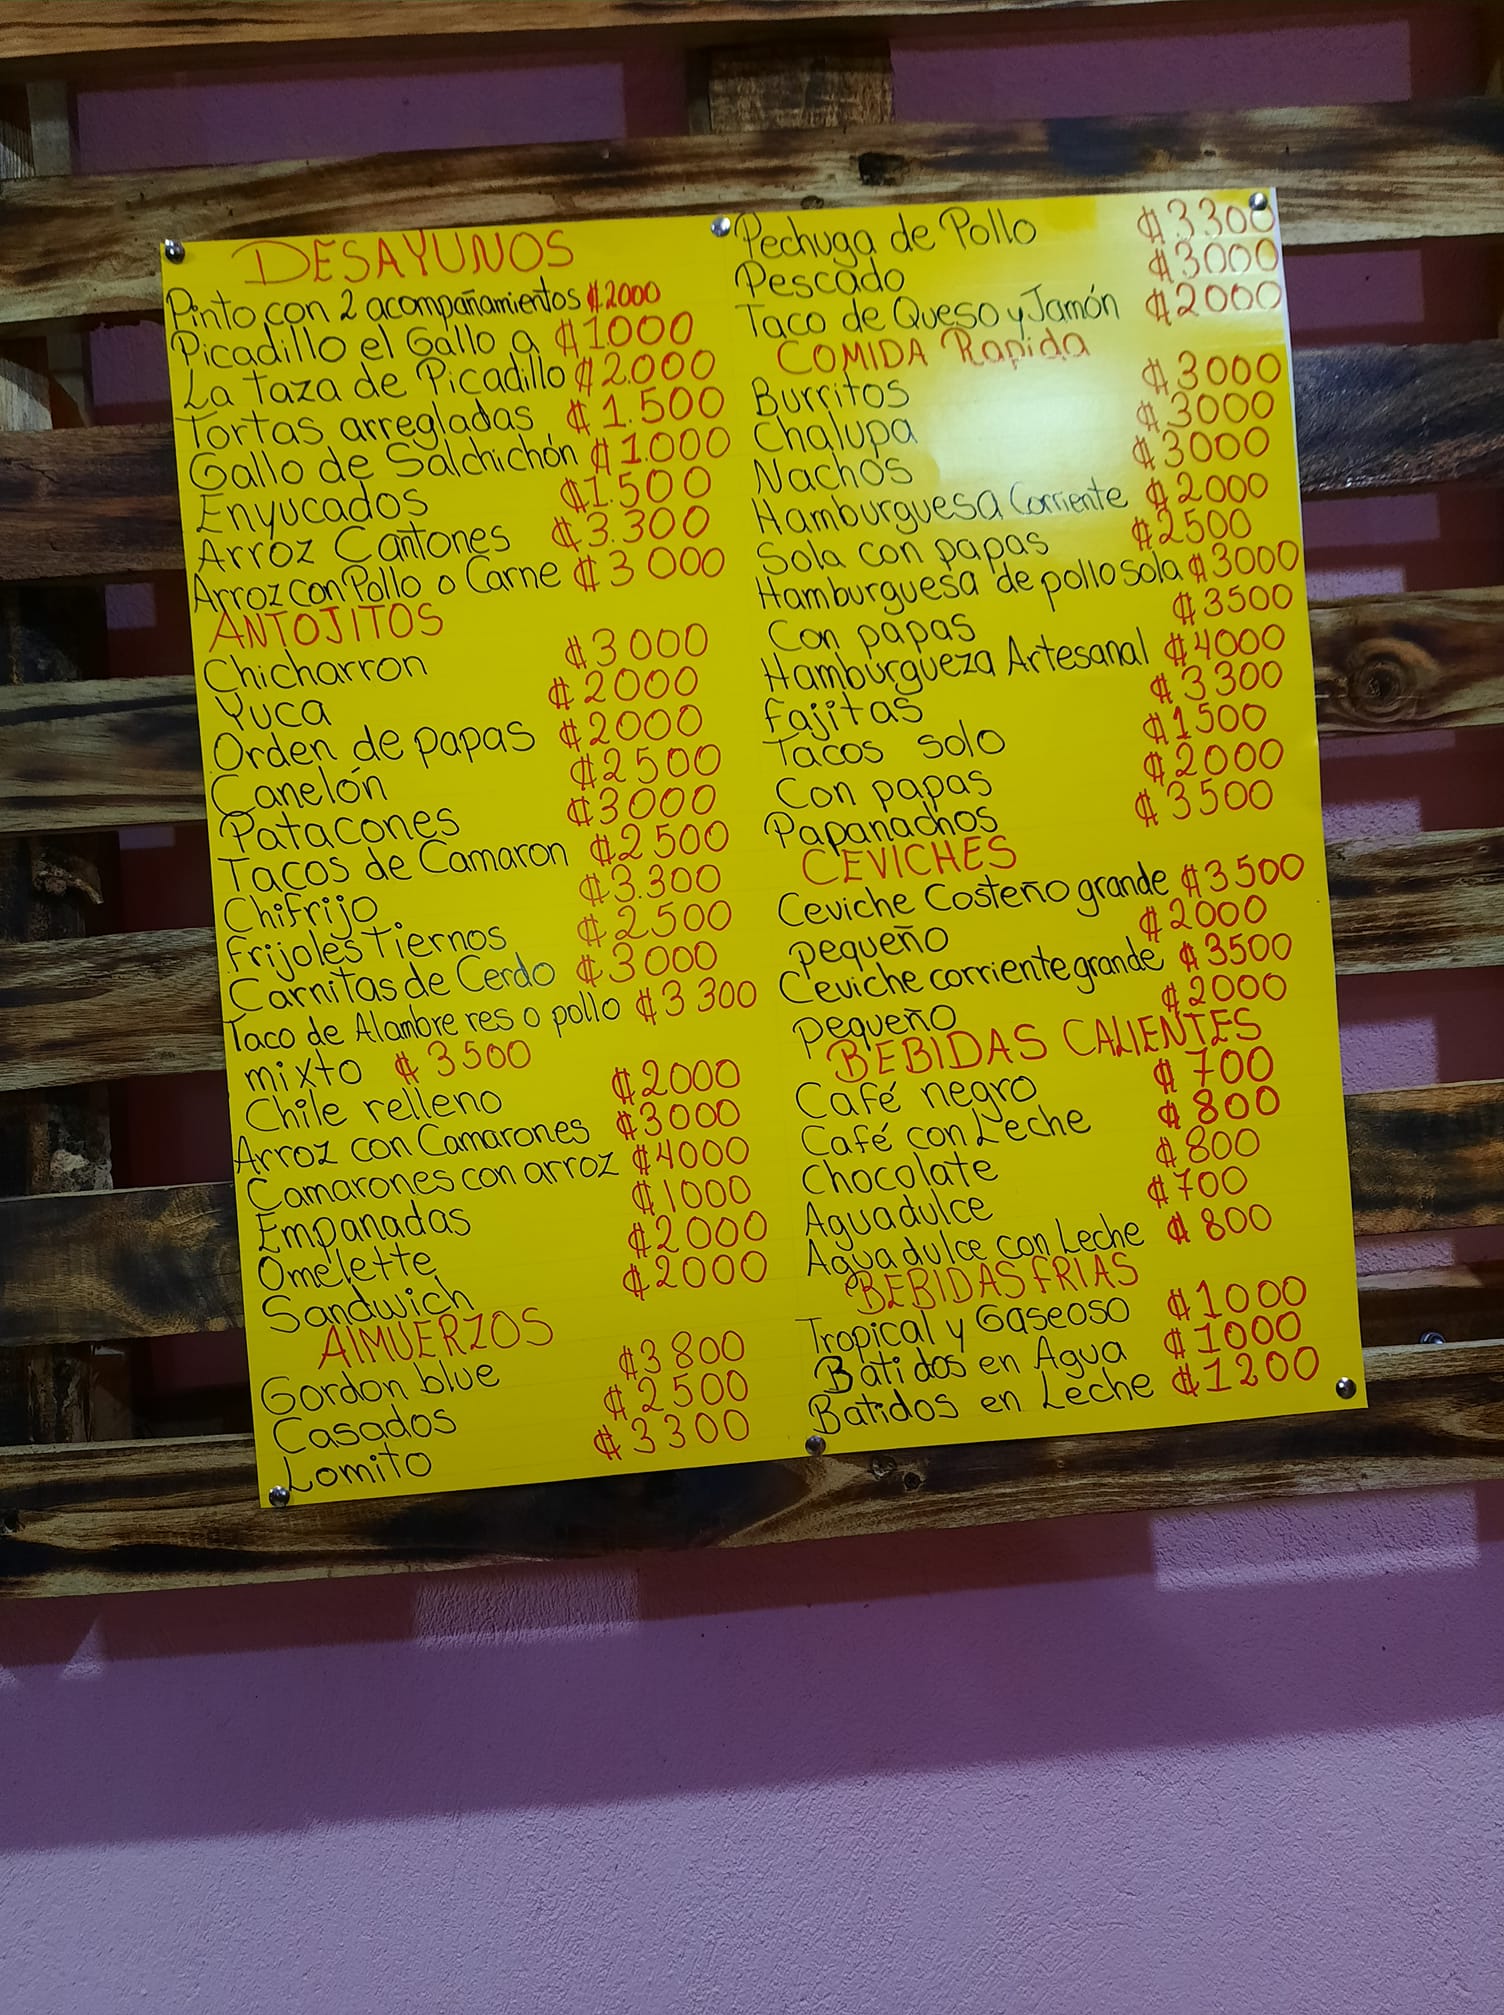 DESAYUNOS
Pinto con 2 acompañamientos ₡2000
Picadillo el Gallo a ₡1000
La taza de Picadillo ₡2.000
Tortas arregladas ₡1.500
Gallo de Salchichón ₡1.000
Enyucados ₡1.500
Arroz Cantones ₡3.300
Arroz con Pollo o Carne ₡3000
ANTOJITOS
Chicharron ₡3000
Yuca ₡2000
Orden de papas ₡2000
Canelón ₡2500
Patacones ₡3000
Tacos de Camaron ₡2500
Chifrijo ₡3.300
Frijoles Tiernos ₡2.500
Carnitas de Cerdo ₡3000
Taco de Alambre res o pollo ₡3300
mixto ₡3500
Chile relleno ₡2000
Arroz con Camarones ₡3000
Camarones con arroz ₡4000
Empanadas ₡1000
Omelette ₡2000
Sandwich ₡2000
AlMUERZOS
Gordon blue ₡3800
Casados ₡2500
Lomito ₡3300
Pechuga de Pollo ₡3300
Pescado ₡3000
Taco de Queso y Jamón ₡2000
COMIDA Rapida
Burritos ₡3000
Chalupa ₡3000
Nachos ₡3000
Hamburguesa Corriente ₡2000
Sola con papas ₡2500
Hamburguesa de pollo sola ₡3000
Con papas ₡3500
Hamburgueza Artesanal ₡4000
Fajitas ₡3300
Tacos solo ₡1500
Con papas ₡2000
Papanachos ₡3500
CEVICHES
Ceviche Costeño grande ₡3500
pequeño ₡2000
Ceviche corriente grande ₡3500
pequeño ₡2000
BEBIDAS CALIENTES
Café negro ₡700
Café con Leche ₡800
Chocolate ₡800
Aguadulce ₡700
Aguadulce con Leche ₡800
BEBIDAS FRIAS
Tropical y Gaseoso ₡1000
Batidos en Agua ₡1000
Batidos en Leche ₡1200